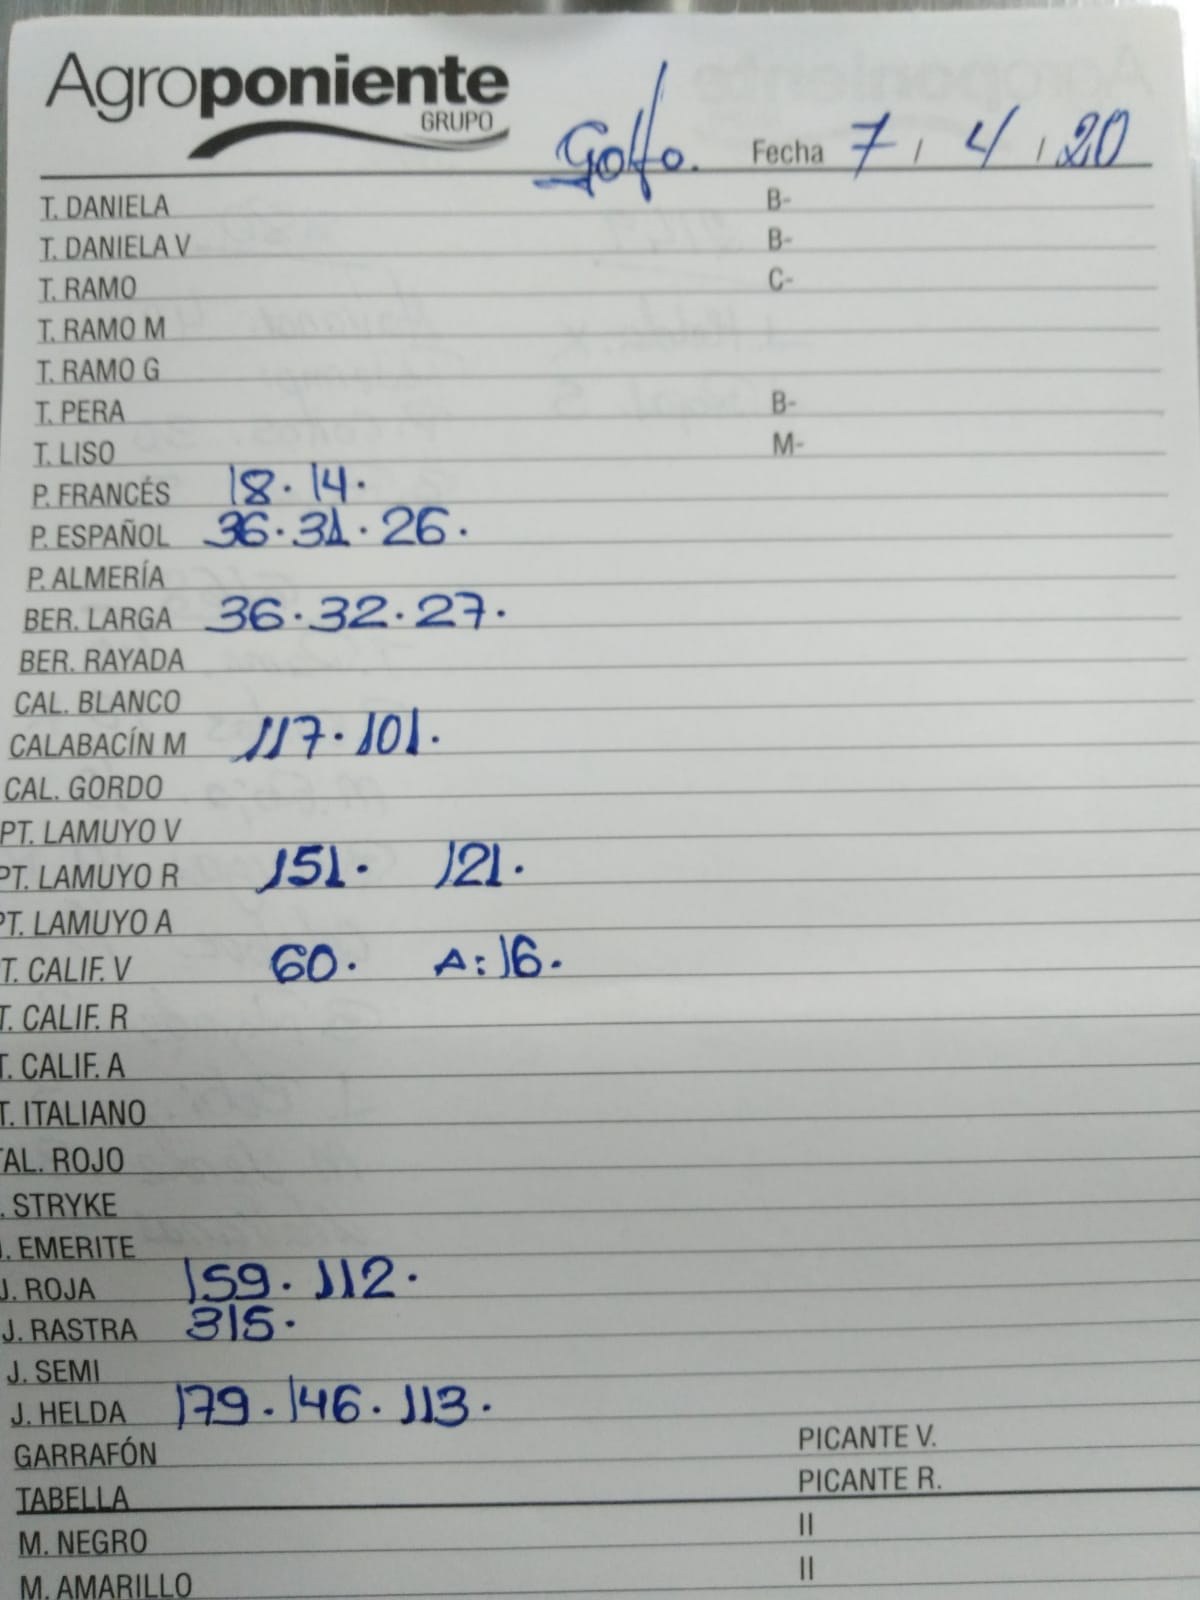 Agroponiente
GRUPO
Golfo. Fecha 7 / 4 / 20
T. DANIELA B-
T. DANIELA V B-
T. RAMO C-
T. RAMO M
T. RAMO G
T. PERA B-
T. LISO M-
P. FRANCÉS 18. 14.
P. ESPAÑOL 36. 31. 26.
P. ALMERÍA
BER. LARGA 36. 32. 27.
BER. RAYADA
CAL. BLANCO
CALABACÍN M 117. 101.
CAL. GORDO
PT. LAMUYO V
PT. LAMUYO R 151. 121.
PT. LAMUYO A
T. CALIF. V 60. A: 16.
T. CALIF. R
T. CALIF. A
T. ITALIANO
AL. ROJO
. STRYKE
J. EMERITE
J. ROJA 159. 112.
J. RASTRA 315.
J. SEMI
J. HELDA 179. 146. 113.
GARRAFÓN PICANTE V.
TABELLA PICANTE R.
M. NEGRO II
M. AMARILLO II